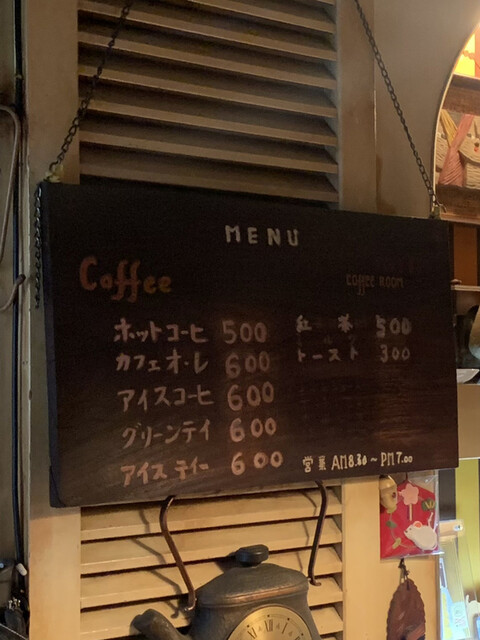 MENU
Coffee
COFFEE ROOM
ホットコーヒ 500
カフェオ・レ 600
アイスコーヒ 600
グリーンティ 600
アイスティー 600
紅茶 500
トースト 300
営業 AM8.30～PM7.00